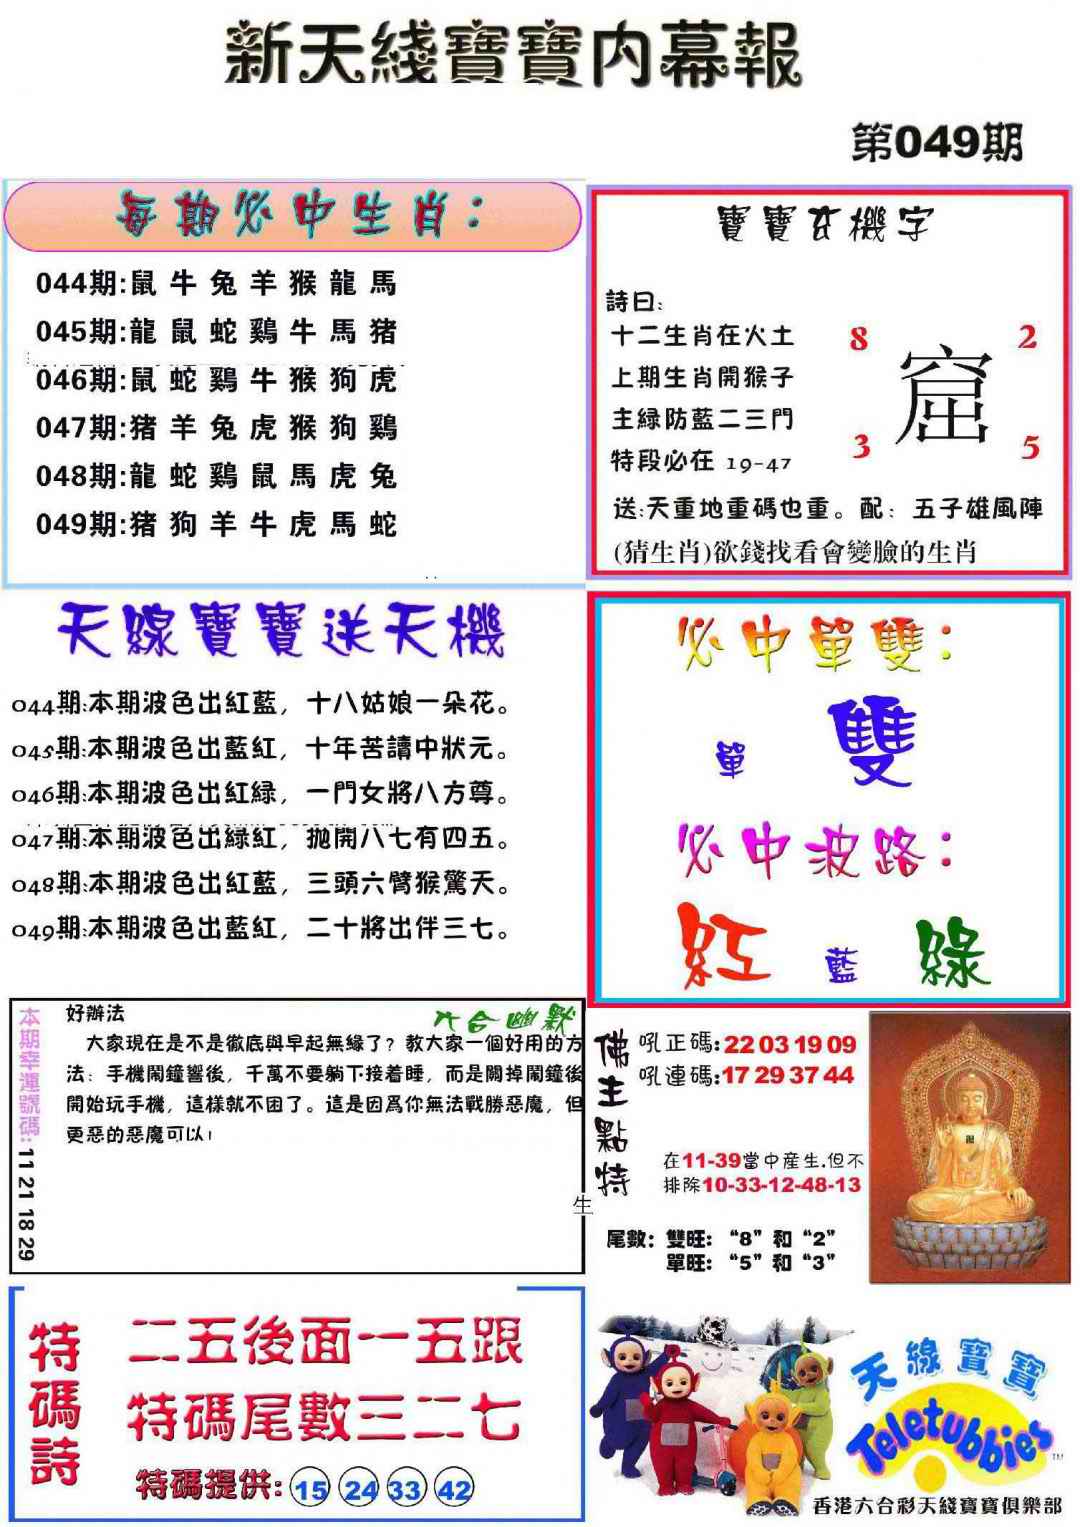 新天綫寶寶内幕報
第049期
每期必中生肖：
044期:鼠牛兔羊猴龍馬
045期:龍鼠蛇鷄牛馬猪
046期:鼠蛇鷄牛猴狗虎
047期:猪羊兔虎猴狗鷄
048期:龍蛇鷄鼠馬虎兔
049期:猪狗羊牛虎馬蛇
寶寶玄機字
詩曰:
十二生肖在火土
上期生肖開猴子
主緑防藍二三門
特段必在 19-47
8 2
窟
3 5
送:天重地重碼也重。配：五子雄風陣
(猜生肖)欲錢找看會變臉的生肖
天線寶寶送天機
044期:本期波色出紅藍，十八姑娘一朵花。
045期:本期波色出藍紅，十年苦讀中狀元。
046期:本期波色出紅緑，一門女將八方尊。
047期:本期波色出緑紅，拋開八七有四五。
048期:本期波色出紅藍，三頭六臂猴驚天。
049期:本期波色出藍紅，二十將出伴三七。
必中單雙：
單 雙
必中波路：
紅 藍 綠
本期幸運號碼:11 21 18 29
六合幽默
好辦法
大家現在是不是徹底與早起無緣了？教大家一個好用的方
法：手機鬧鐘響後，千萬不要躺下接着睡，而是關掉鬧鐘後
開始玩手機，這樣就不困了。這是因爲你無法戰勝惡魔，但
更惡的惡魔可以!
生
佛主點特
吼正碼:22 03 19 09
吼連碼:17 29 37 44
在11-39當中産生.但不
排除10-33-12-48-13
尾數：雙旺：“8”和“2”
單旺：“5”和“3”
特碼詩
二五後面一五跟
特碼尾數三二七
特碼提供: 15 24 33 42
天線寶寶
Teletubbies
TM
香港六合彩天綫寶寶俱樂部